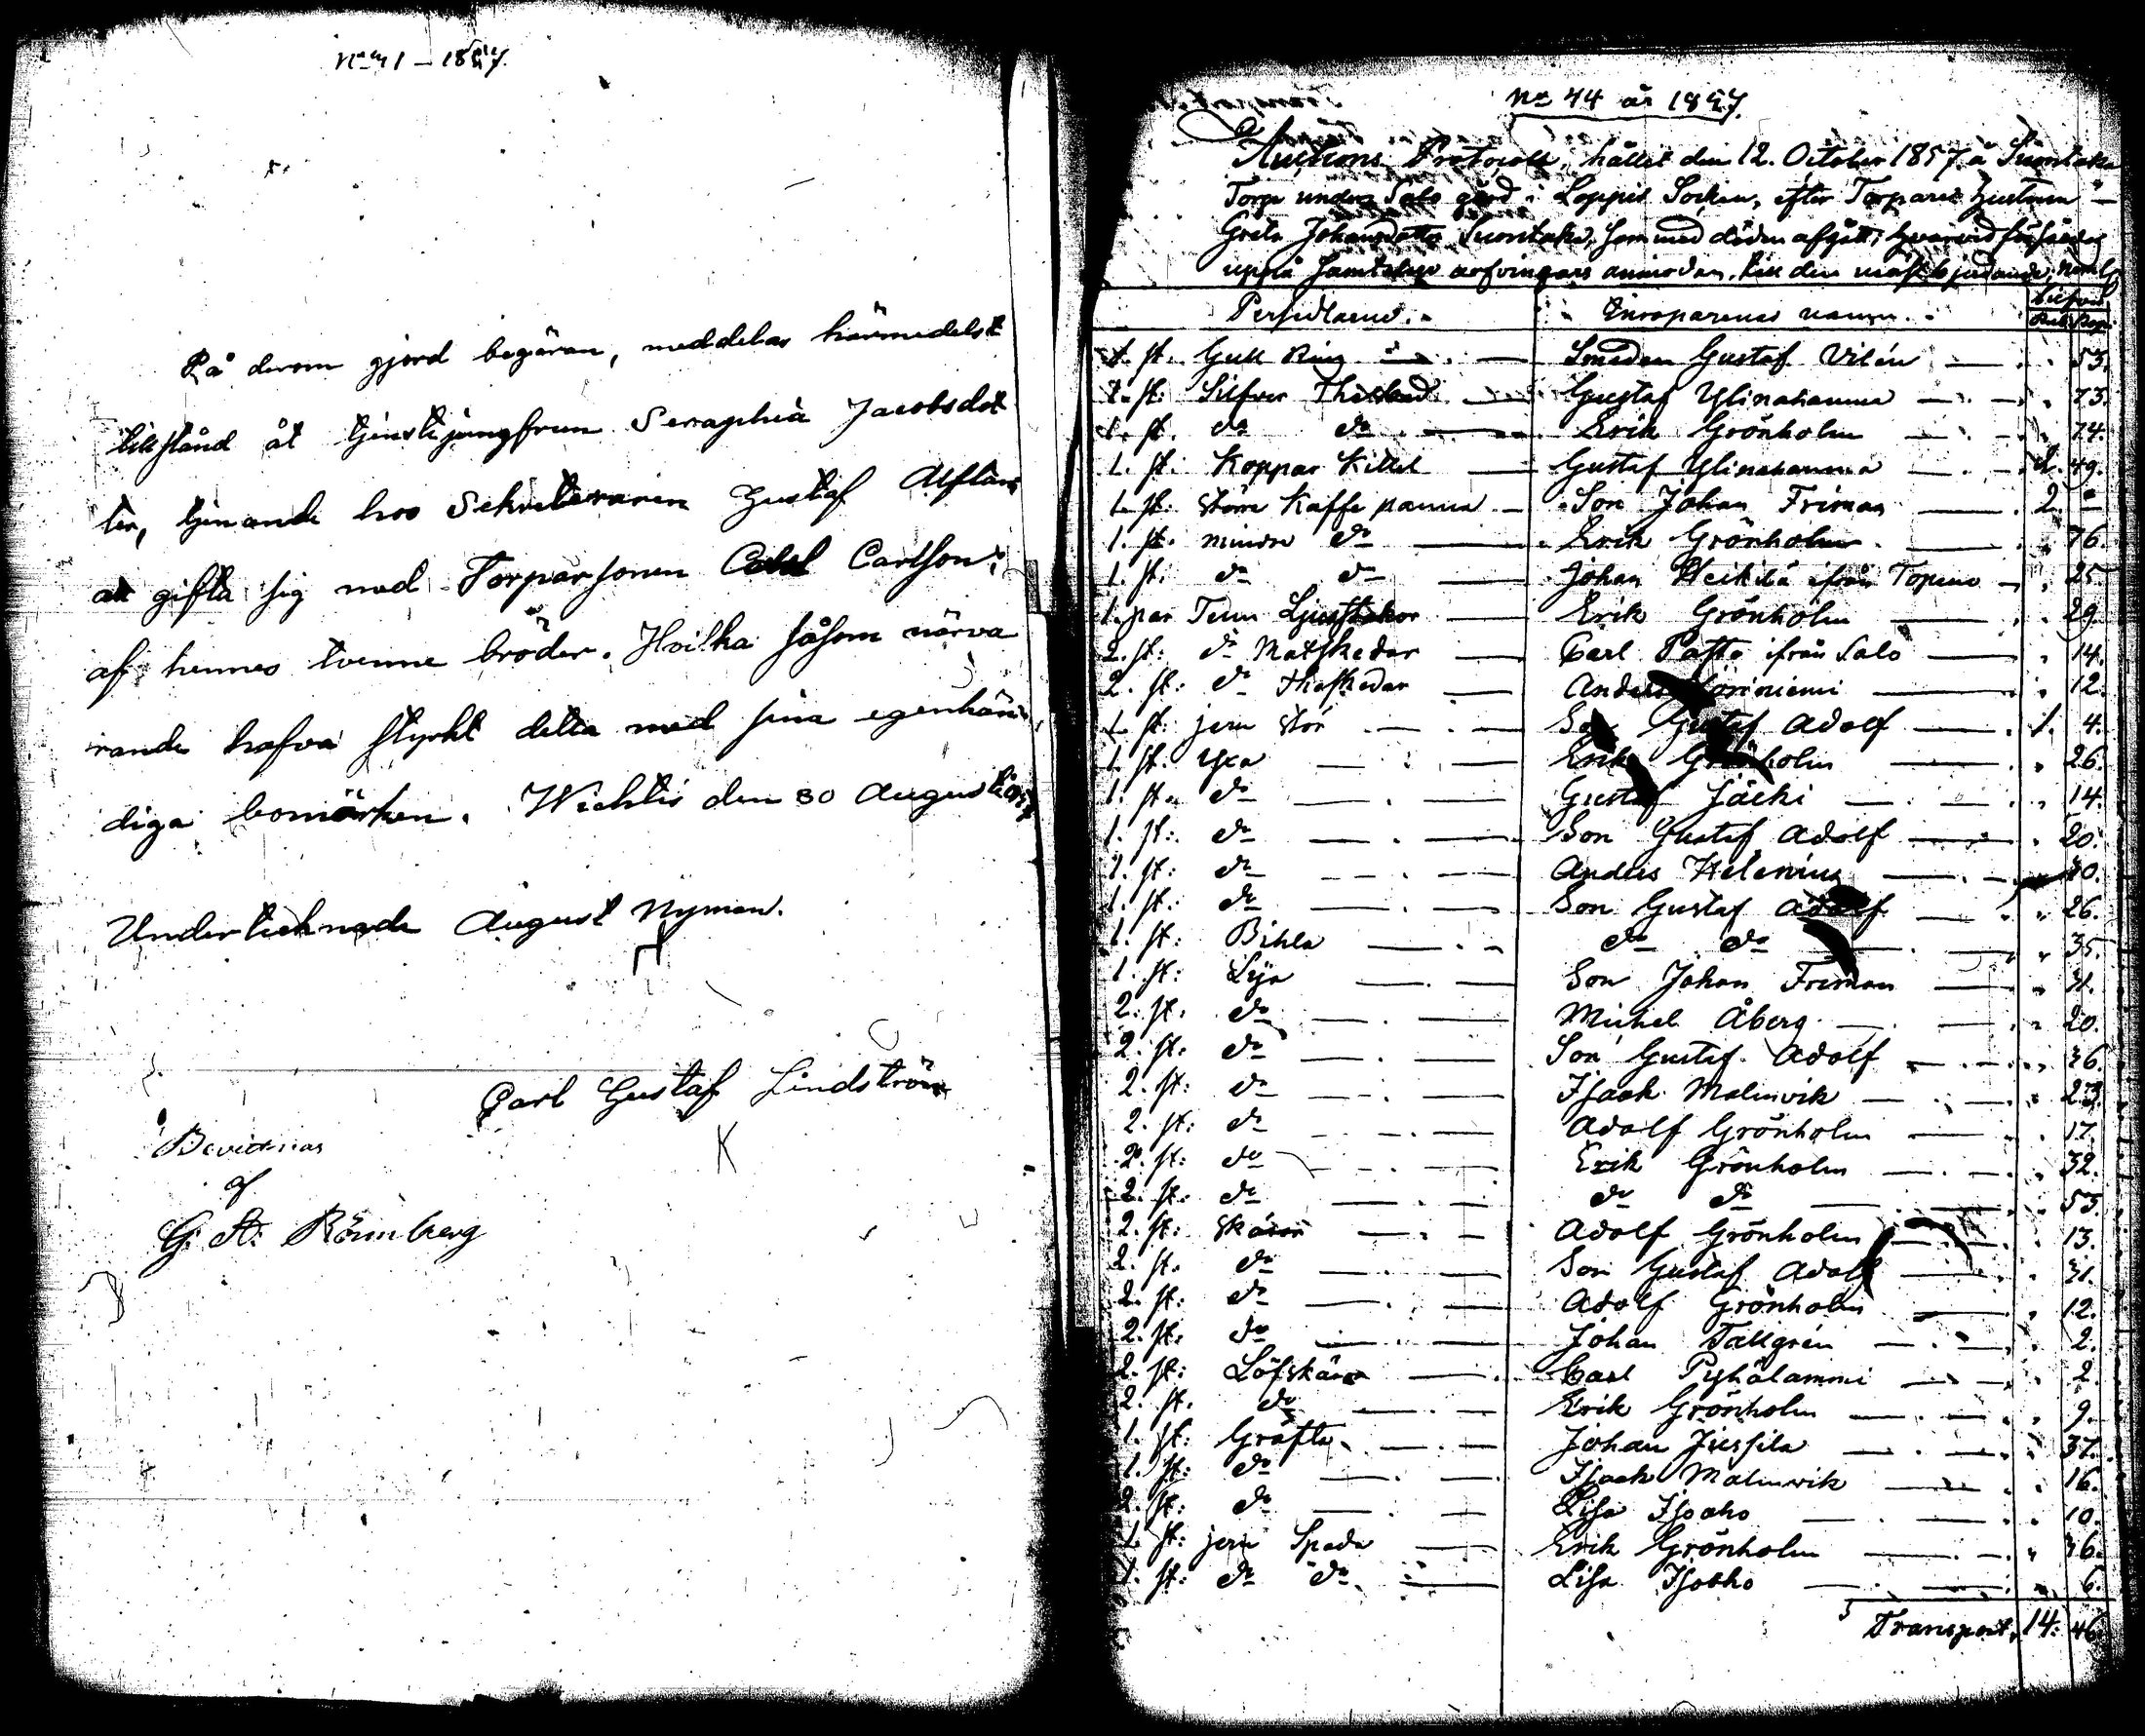 No 41 – 1857.
På derom gjord begäran, meddelas härmedelst
tillstånd åt tjenstejungfrun Seraphia Jacobsdot
ter, tjenande hos Sekreteraren Gustaf Alftan
att gifta sig med Torparsonen Carl Carlsson,
af hennes tvenne bröder. Hvilka såsom närva
rande hafva styrkt detta med sina egenhän
diga bomärken. Wichtis den 30 Augusti 1857
Undertecknade August Nyman.
Carl Gustaf Lindström
K
Bevittnas
af
G. A: Rönnberg
No 44 år 1857.
Auctions Protocoll, hållet den 12. October 1857. å Suontaka
Torp under Salo gård i Loppis Socken, efter Torpare hustrun
Greta Johansdotter Suontaka, som med döden afgått; hvarvid försåldes
uppå samtelige arfvingars anmodan, till den mästbjudande; neml
Persedlarne. Inroparenes namn. Silfver Rub. Kop.
1. st. Gull Ring — Smeden Gustaf Vilén — " 53.
1. st. Silfver Thesked — Gustaf Ylinahanna — " 73.
1. st. do do — Erik Grönholm — " 74.
1. st. Koppar Kittel — Gustaf Ylinahanna — 2. 49.
1. st. större Kaffe panna — Son Johan Friman — 2. "
1. st. mindre do — Erik Grönholm — " 76.
1. st. do do — Johan Heikilä ifrån Topeno — " 25
1. par Tenn Ljusstakar — Erik Grönholm — " 29.
2. st: do Matskedar — Carl Pasto ifrån Salo — " 14.
2. st: do Theskedar — Anders — " 12.
1. st: jern stör — Son Gustaf Adolf — 1. 4.
1. st. Yxa — Erik Grönholm — " 26.
1. st. do — Gustaf Jäcki — " 14.
1. st: do — Son Gustaf Adolf — " 20.
1. st: do — Anders Helenius — " 30.
1. st: do — Son Gustaf Adolf — " 26.
1. st: Bihla — do do — " 35.
1. st: Lija — Son Johan Friman — " 31.
2. st. do — Michel Åberg — " 20.
2. st. do — Son Gustaf Adolf — " 36.
2. st: do — Isaak Malmvik — " 23.
2. st: do — Adolf Grönholm — " 17.
2. st: do — Erik Grönholm — " 32.
2. st. do — do do — " 53.
2. st: Skäror — Adolf Grönholm — " 13.
2. st. do — Son Gustaf Adolf — " 31.
2. st. do — Adolf Grönholm — " 12.
2. st. do — Johan Tallgrén — " 2.
2. st: Löfskäror — Carl Pyhälammi — " 2.
2. st. do — Erik Grönholm — " 9.
1. st: Gräfta — Johan Jussila — " 37.
1. st: do — Isaak Malmvik — " 16.
2. st: do — Lisa Isoaho — " 10.
1. st: jern Spada — Erik Grönholm — " 36.
1. st: do do — Lisa Isoaho — " 6.
Transport, 14. 46.